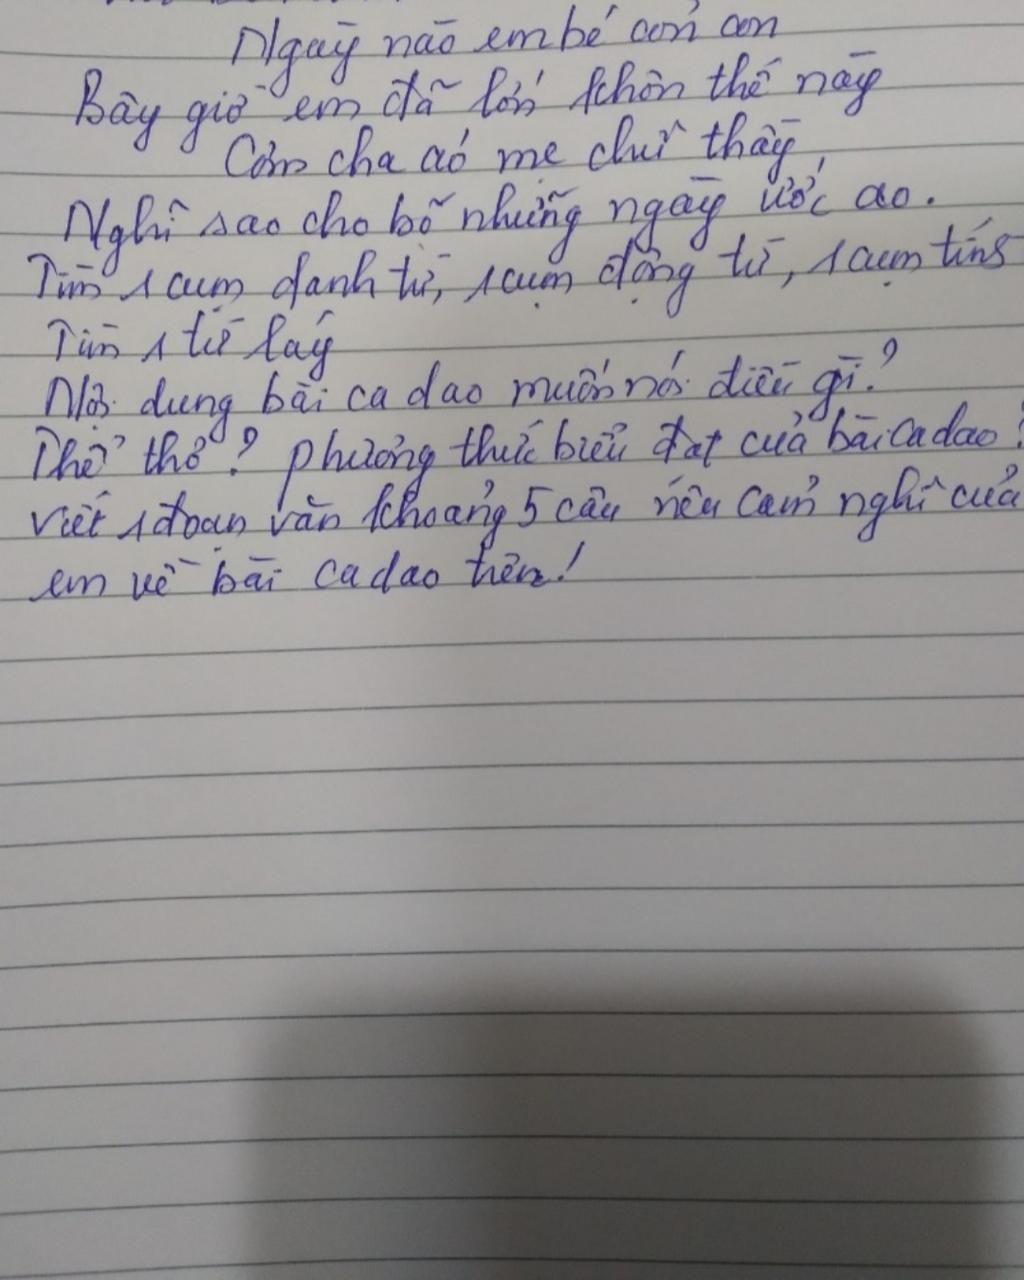 Ngày nào em bé cỏn con
Bây giờ em đã lớn khôn thế này
Cơm cha áo mẹ chữ thầy
Nghĩ sao cho bõ những ngày ước ao.
Tìm 1 cụm danh từ, 1 cụm động từ, 1 cụm tính
Tìm 1 từ láy
Nội dung bài ca dao muốn nói điều gì?
Thể thơ? phương thức biểu đạt của bài ca dao?
viết 1 đoạn văn khoảng 5 câu nêu cảm nghĩ của
em về bài ca dao trên!